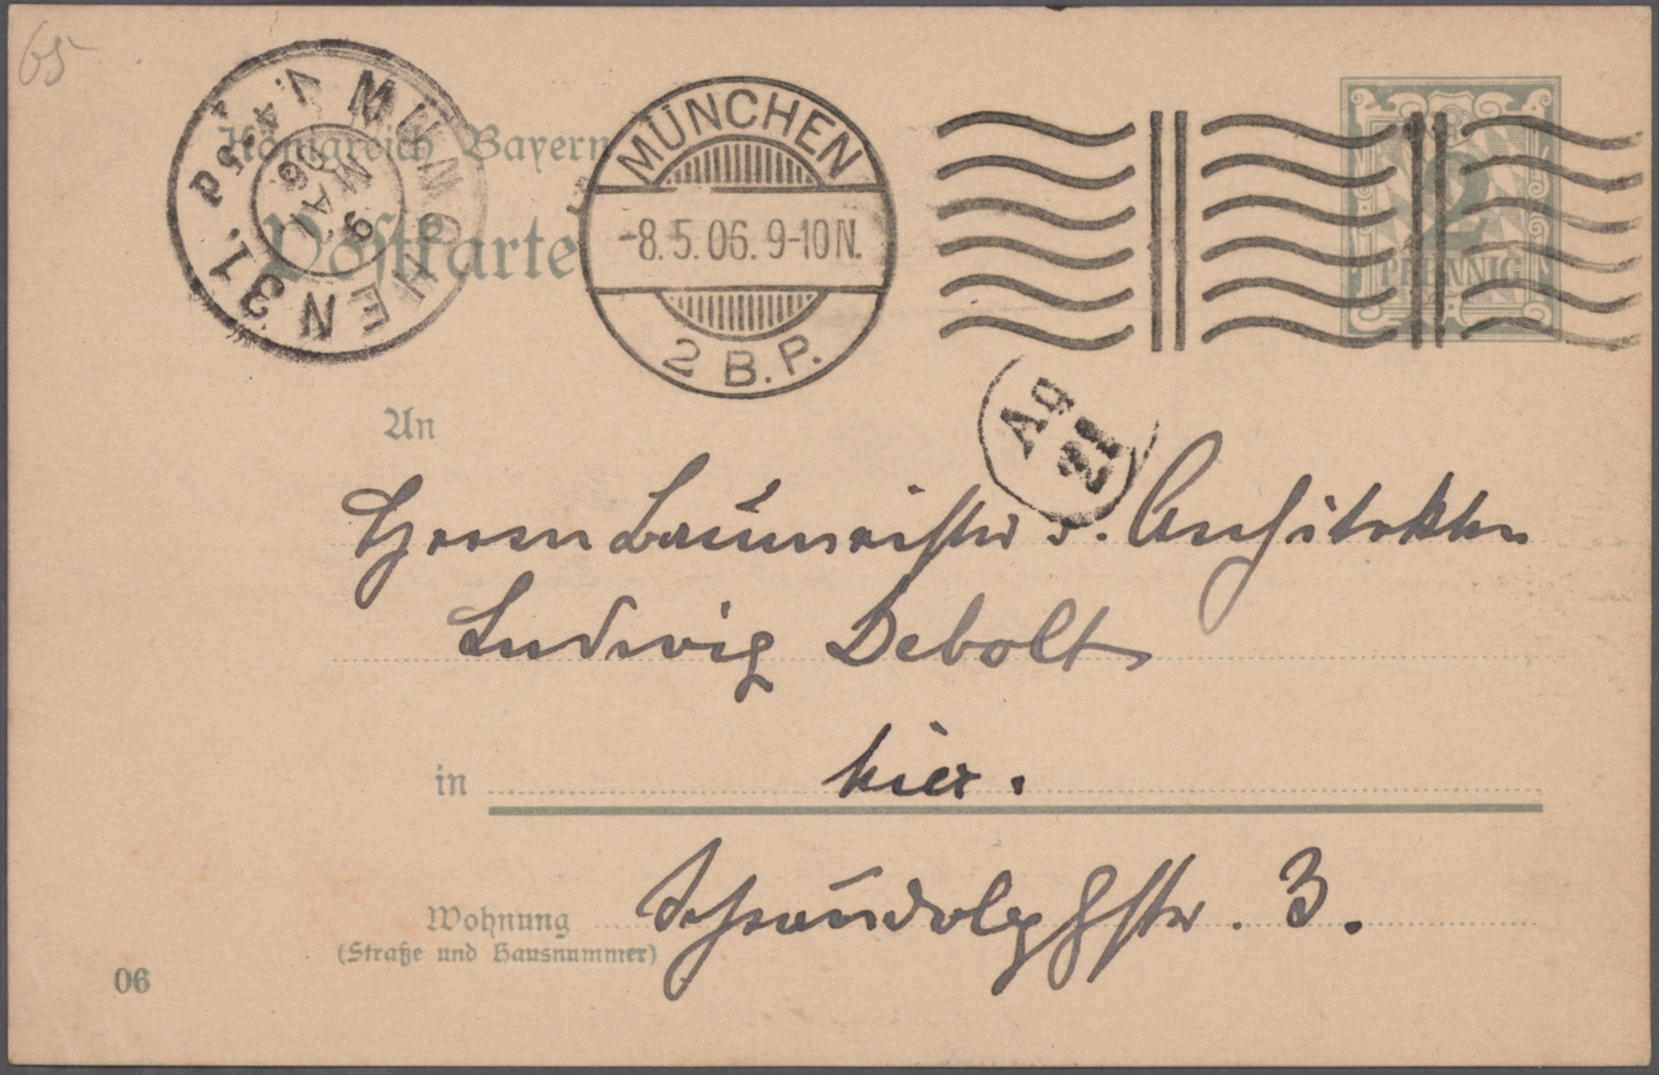 65
Königreich Bayern
Postkarte
MÜNCHEN 31.
V. 4-5
9 MAI 06
MÜNCHEN
-8.5.06. 9-10 N.
2 B.P.
2
PFENNIG
Aų
21
An
Herrn Baumeister u. Architekten
Ludwig Debolt
in hier.
Wohnung
(Straße und Hausnummer)
Schraudolphstr. 3.
06